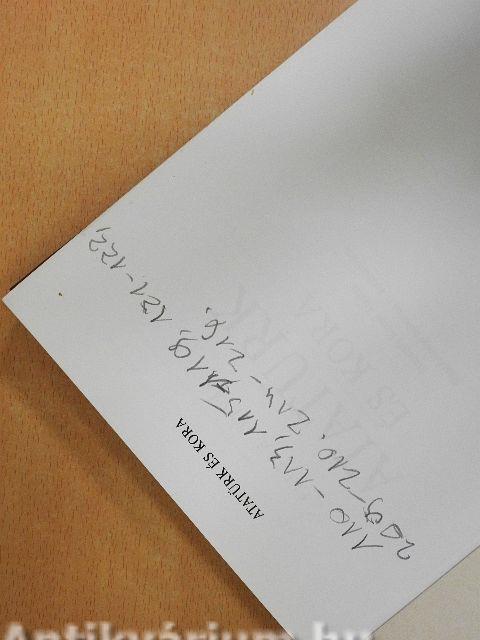 ATATÜRK ÉS KORA
110 - 113, 115-119, 121-122,
209-210. 214-216.
ATATÜRK
ÉS KORA
Antikvárium.hu